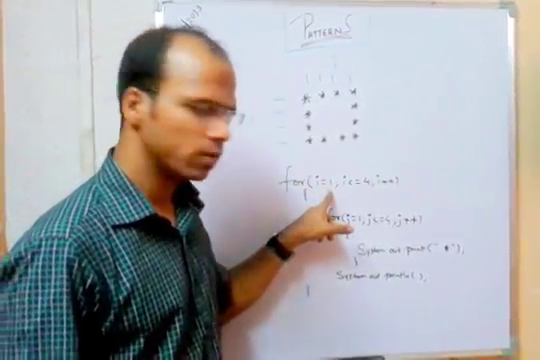 PATTERNS
* * * * *
*       *
*       *
* * * * *
for(i=1; i<=4; i++)
for(j=1; j<=4; j++)
System.out.print(" * ");
System.out.println( );